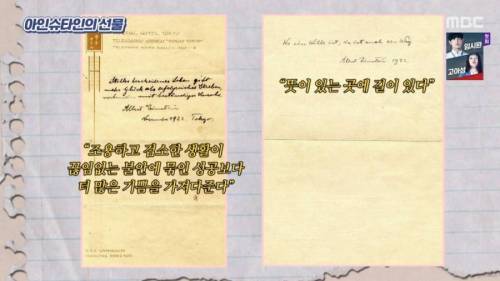 아인슈타인의 선물
MBC
임시완
고아성
IMPERIAL HOTEL, TOKYO
Stilles bescheidenes Leben gibt
mehr Glück als erfolgreiches Streben
verbunden mit beständiger Unruhe.
Albert Einstein
November 1922. Tokyo.
“조용하고 검소한 생활이
끊임없는 불안에 묶인 성공보다
더 많은 기쁨을 가져다준다”
Wo ein Wille ist, da ist auch ein Weg
Albert Einstein 1922
“뜻이 있는 곳에 길이 있다”